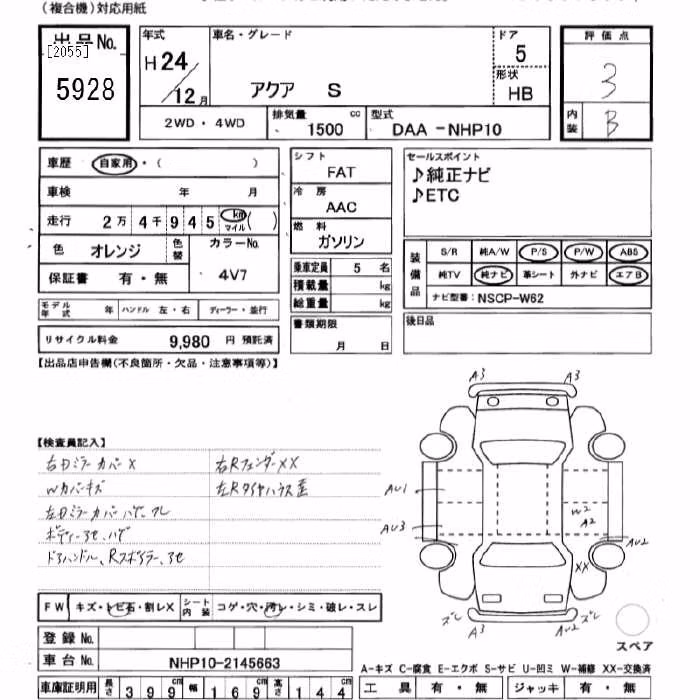 (複合機)対応用紙
出品No.
[2055]
5928
年式
H 24
12 月
車名・グレード
アクア S
ドア
5
形状
HB
評価点
3
内装
B
2WD・4WD
排気量
1500 cc
型式
DAA -NHP10
車歴 自家用・( )
車検 年 月
走行 2万 4千 9 4 5 km マイル ( )
色 オレンジ 色替
カラーNo.
4V7
保証書 有・無
シフト
FAT
冷房
AAC
燃料
ガソリン
セールスポイント
♪純正ナビ
♪ETC
乗車定員 5 名
積載量 kg
総重量 kg
装備品
S/R 純A/W P/S P/W ABS
純TV 純ナビ 革シート 外ナビ エアB
ナビ型番: NSCP-W62
モデル年式 年 ハンドル 左・右 ディーラー・並行
書類期限
月 日
後日品
リサイクル料金 9,980 円 預託済
【出品店申告欄(不良箇所・欠品・注意事項等)】
【検査員記入】
右Dミラーカバー X
Wカバーキズ
左Dミラーカバーハゲ、ズレ
ボディーアセ、ハゲ
ドアハンドル、Rスポイラーアセ
右RフェンダーXX
左Rタイヤハウス歪
A3
A3
AU1
AU3
W2
A2
AU2
XX
ズレ
A3
AU2
ズレ
スペア
FW キズ・トビ石・割レX
シート内装 コゲ・穴・汚レ・シミ・破レ・スレ
登録No.
車台No. NHP10-2145663
A-キズ C-腐食 E-エクボ S-サビ U-凹ミ W-補修 XX-交換済
車庫証明用 長さ 3 9 9 cm 幅 1 6 9 cm 高さ 1 4 4 cm
工具 有・無 ジャッキ 有・無